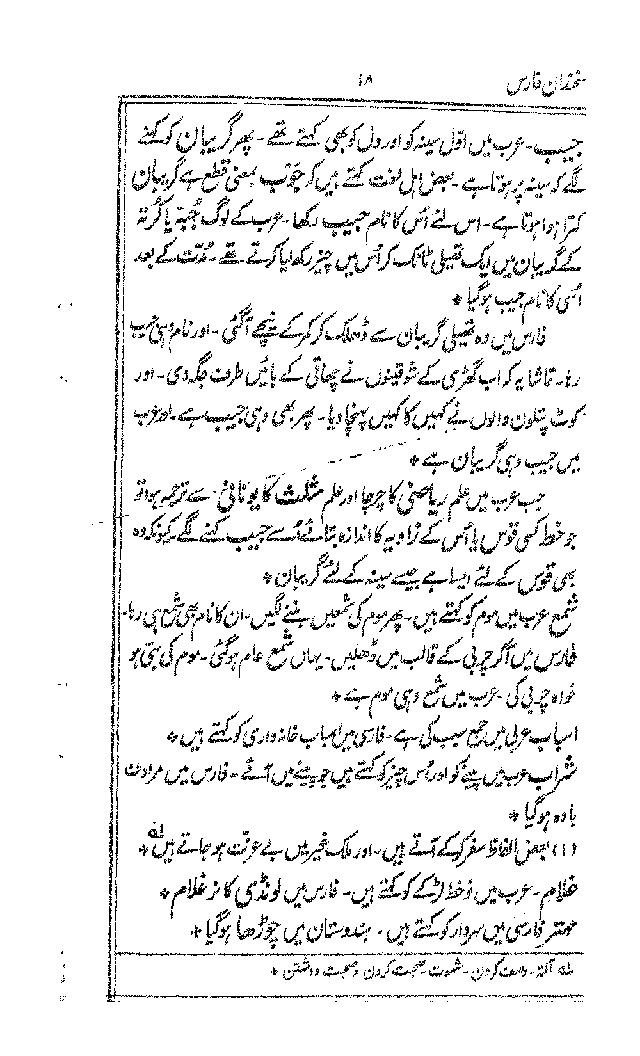 سخندان فارس ۱۸
جیب۔ عرب میں اوّل سینہ کو اور دل کو بھی کہتے تھے۔ پھر گریبان کو کہنے
لگے کہ سینہ پر ہوتا ہے۔ بعض اہل لغت کہتے ہیں کہ جَوْب بمعنی قطع ہے گریبان
کترا ہوا ہوتا ہے۔ اس لئے اُس کا نام جیب رکھا۔ عرب کے لوگ جُبّہ یا کُرتہ
کے گریبان میں ایک تھیلی ٹانک کر اُس میں چیز رکھ لیا کرتے تھے۔ مُدّت کے بعد
اُسی کا نام جیب ہوگیا *
فارس میں وہ تھیلی گریبان سے ڈھلک کر کمر کے نیچے آگئی۔ اور نام وہی جیب
رہا۔ تماشا یہ کہ اب گھڑی کے شوقینوں نے چھاتی کے بائیں طرف جگہ دی۔ اور
کوٹ پتلون والوں نے کہیں کا کہیں پہنچا دیا۔ پھر بھی وہی جیب ہے۔ اور عرب
میں جیب وہی گریبان ہے *
جب عرب میں علم ریاضی کا چرچا اور علم مثلث کا یونانی سے ترجمہ ہوا تو
جو خط کسی قوس یا اُس کے زاویہ کا اندازہ بتائے اُسے جیب کہنے لگے کیونکہ وہ
بھی قوس کے لئے ایسا ہے جیسے سینہ کے لئے گریبان *
شمع عرب میں موم کو کہتے ہیں۔ پھر موم کی شمعیں بننے لگیں۔ ان کا نام بھی شمع ہی رہا۔
فارس میں آکر چربی کے قالب میں ڈھلیں۔ یہاں شمع عام ہوگئی۔ موم کی بتی ہو
خواہ چربی کی۔ عرب میں شمع وہی موم ہے *
اسباب عربی میں جمع سبب کی ہے۔ فارسی میں اسباب خانہ داری کو کہتے ہیں *
شراب عرب میں پینے کو اور اُس چیز کو کہتے ہیں جو پینے میں آئے۔ فارس میں مرادف
بادہ ہوگیا *
(۱) بعض الفاظ سفر کرکے آتے ہیں۔ اور ملک غیر میں بے عزت ہو جاتے ہیں لہ *
غلام۔ عرب میں نوخط لڑکے کو کہتے ہیں۔ فارس میں لونڈی کا نر غلام *
مہتر فارسی میں سردار کو کہتے ہیں۔ ہندوستان میں چوڑھا ہوگیا *
لہ آلۃ۔ وصف کردن۔ شہوت صحبت کردن و صحبت داشتن *